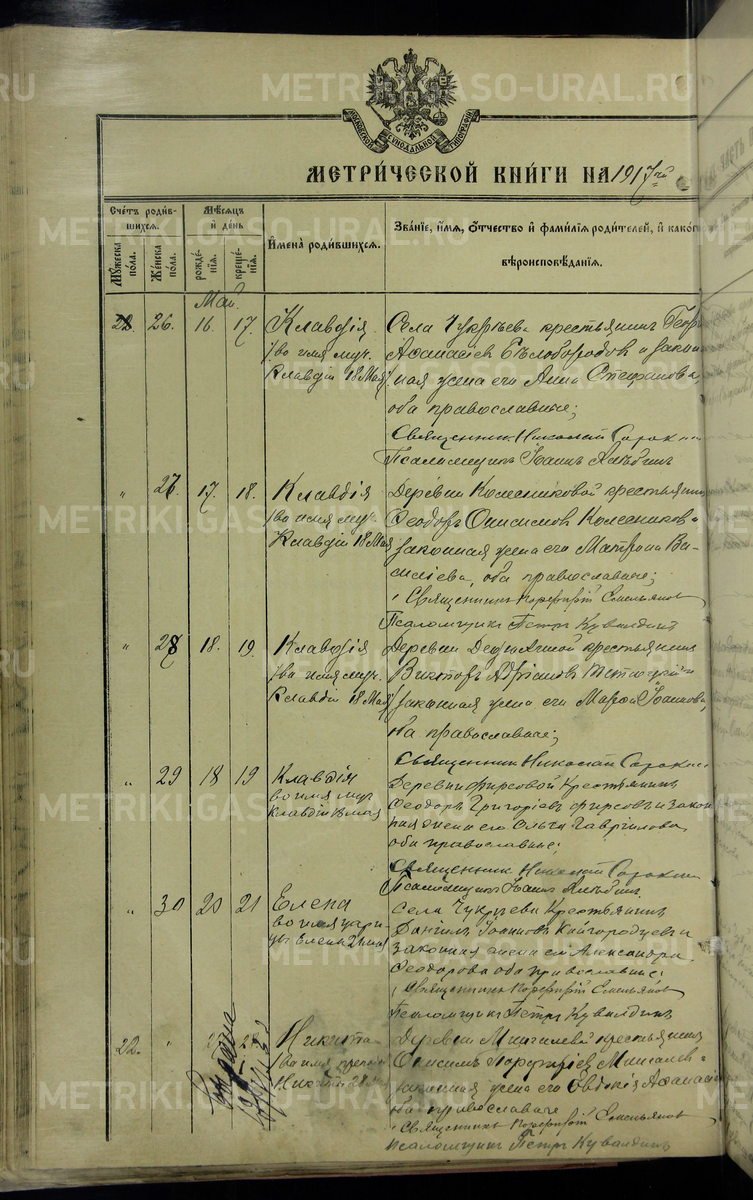 МЕТРИ́ЧЕСКОЙ КНИ́ГИ НА 1917 й
Сче́тъ роди́в-
шихся.
Мꙋ́жеска
по́ла.
Же́нска
по́ла.
Мѣ́сяцъ
и́ де́нь
рожде́-
нія.
креще́-
нія.
И҆мена̀ роди́вшихся.
Зва́ніе, и҆́мя, ѻ҆́тчество и҆ фами́лія роди́телей, и҆ како́г
вѣроисповѣ́данія.
Май.
26. 16. 17. Клавдія
/во имя муч.
Клавдіи 18 Мая/
Села Чукрѣева крестьянинъ Геор
Аѳанасіев Бѣлобородов и закон
ная жена его Анна Стефанова,
оба православные;
Священник Николай Сорокин
Псаломщикъ Іоаннъ
" 27. 17. 18. Клавдія
/во имя муч.
Клавдіи 18 Мая
Деревни Колесниковой крестьянин
Ѳеодоръ Онисимов Колесников и
законная жена его Матрона Ва-
силіева, оба православные;
Священникъ Порфирій Емельянов
Псаломщикъ Петръ Кувалдинъ
" 28 18. 19. Клавдія
/во имя муч.
Клавдіи 18 Мая/
Деревни крестьянинъ
Викторъ Адріанов и
законная жена его Марѳа Іоаннова,
оба православные;
Священник Николай Сорокин
" 29 18 19 Клавдія
во имя муч
Клавдіи 18 мая
Деревни Фирсовой Крестьянинъ
Ѳеодоръ Григоріевъ Фирсовъ и закон
ная жена его Ольга Гавріилова
оба православные;
Священник Николай Сорокин
Псаломщикъ Іоаннъ
" 30 20 21 Елена
во имя цари-
цы Елены 21 мая
Села Чукрѣева Крестьянинъ
Даніилъ Іоанновъ Кайгородцев и
законная жена его Александра
Ѳеодорова оба православные;
Священникъ Порфирій Емельянов
Псаломщикъ Петръ Кувалдинъ
22. " Никита
/во имя препод
Никиты 28
Деревни Мингалевой крестьянинъ
Онисимъ Мингалев и
законная жена его Евдокія Аѳанасі
оба православные
Священникъ Порфирій Емельянов
Псаломщикъ Петръ Кувалдинъ
METRIKI.GASO-URAL.RU